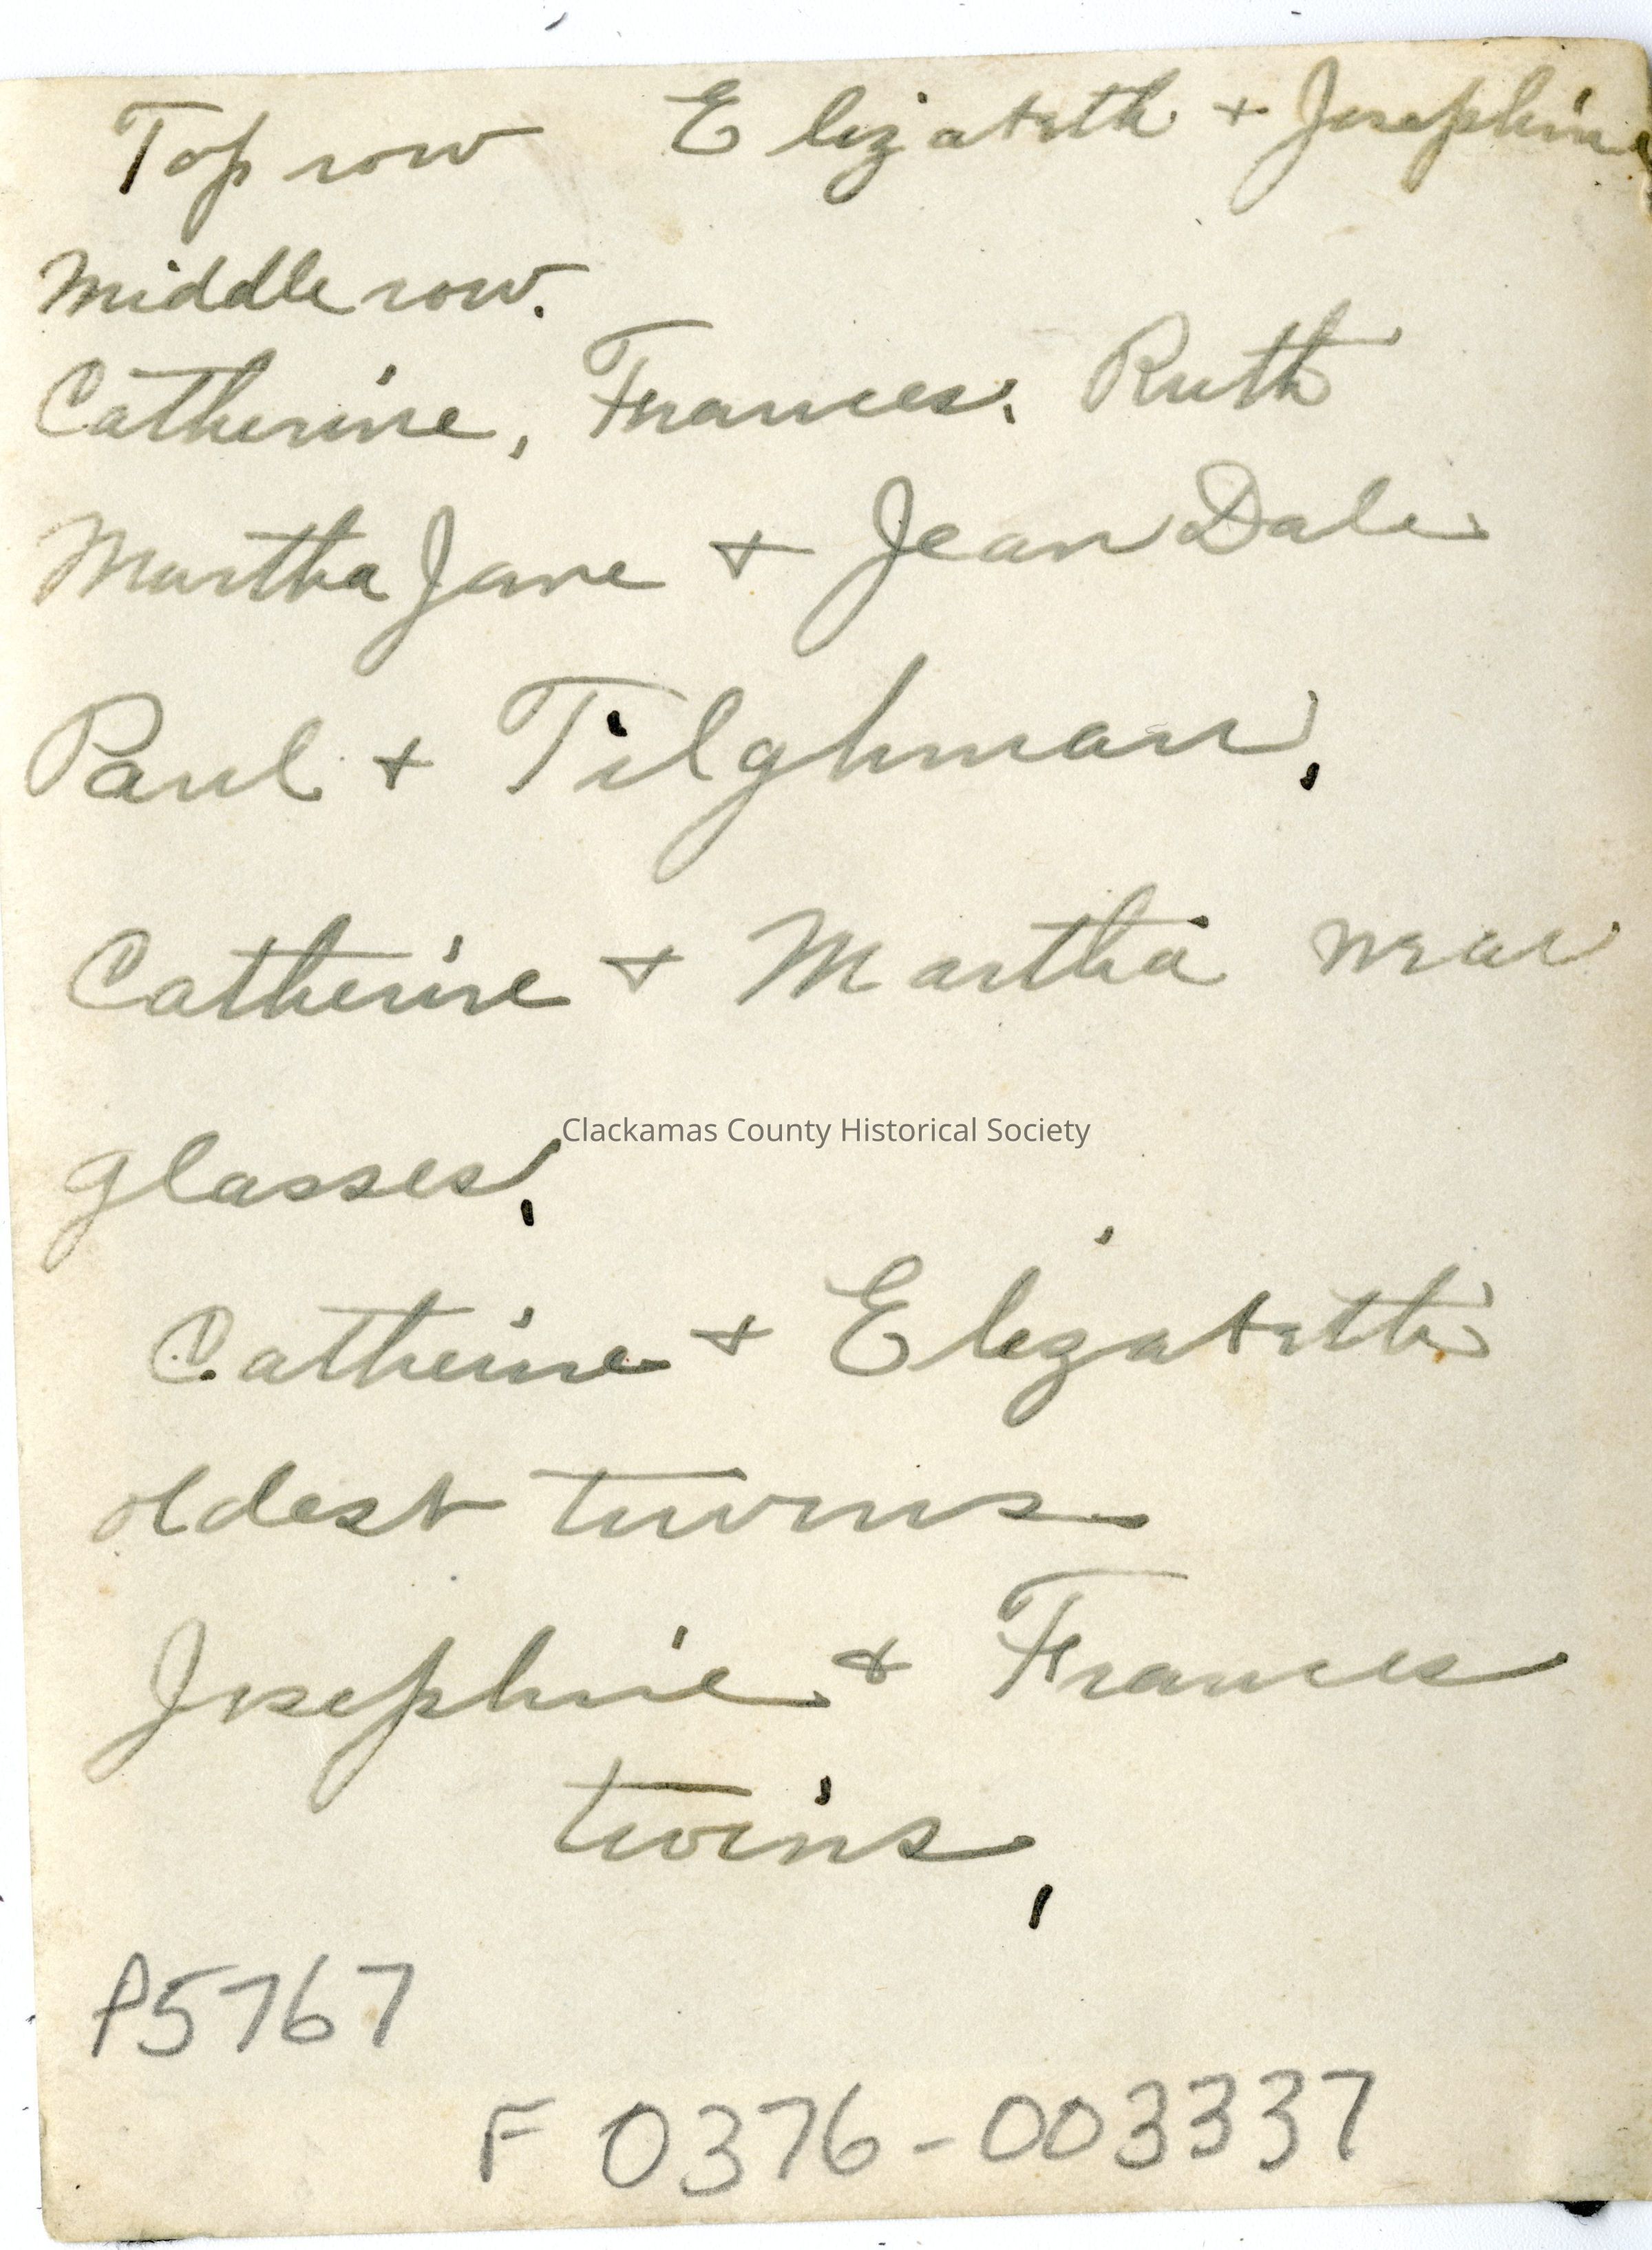 Top row Elizabeth + Josephine
Middle row.
Catherine, Frances, Ruth
Martha Jane + Jean Dale
Paul + Tilghman,
Catherine + Martha wear
Clackamas County Historical Society
glasses,
Catherine + Elizabeth
oldest twins
Josephine & Frances
twins,
P5767
F 0376-003337